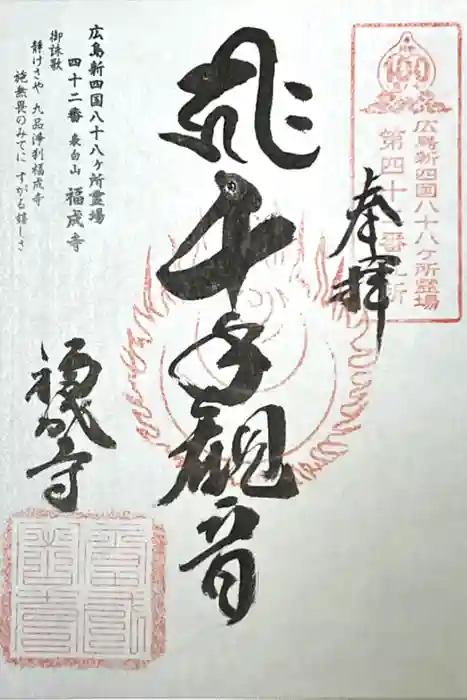 100
広島新四国八十八ヶ所霊場
第四十二番札所
奉拝
千手観音
広島新四国八十八ヶ所霊場
四十二番 表白山 福成寺
御詠歌
静けさや 九品浄刹福成寺
施無畏のみてに すがる嬉しさ
福成寺